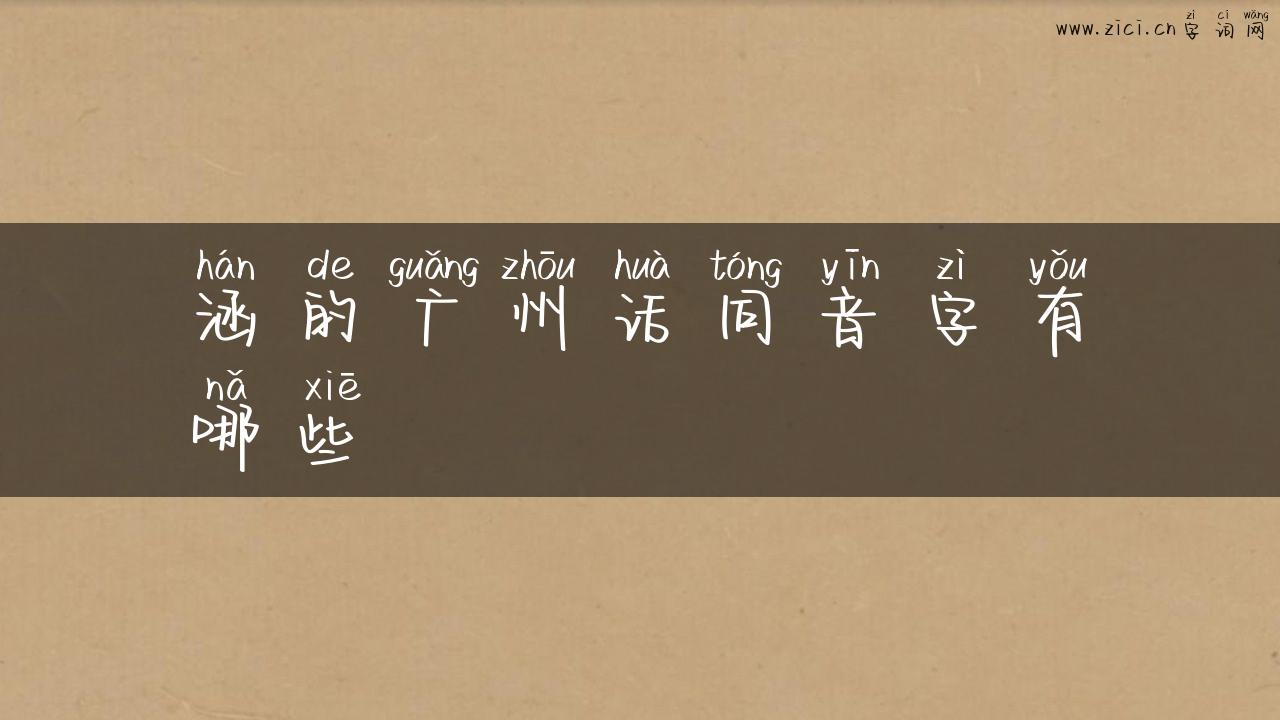 zì cí wǎng
www.zici.cn 字 词 网
hán de guǎng zhōu huà tóng yīn zì yǒu
涵 的 广 州 话 同 音 字 有
nǎ xiē
哪 些